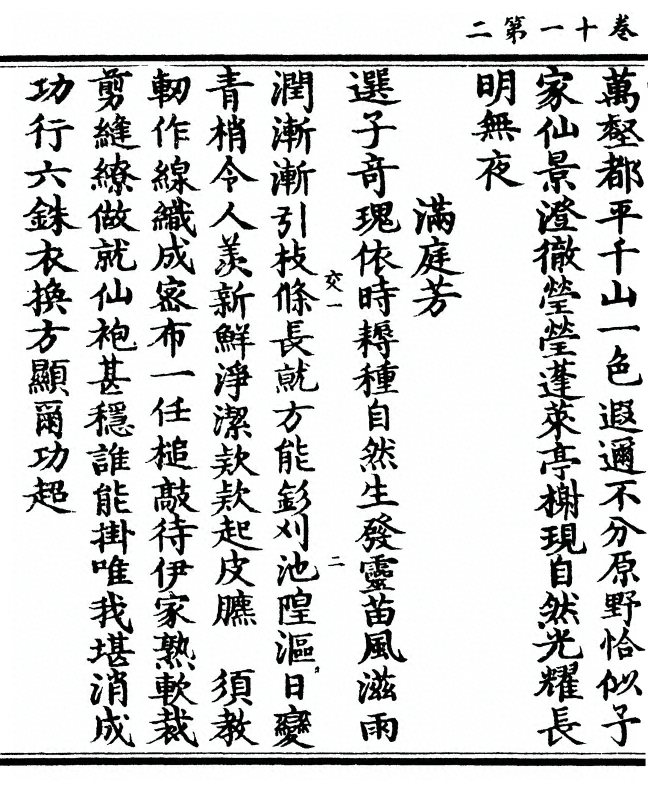 二第一十卷
萬壑都平千山一色遐邇不分原野恰似子
家仙景澄徹瑩瑩蓬萊亭榭現自然光耀長
明無夜
滿庭芳
選子奇瑰依時耨種自然生發靈苗風滋雨
潤漸漸引枝條長就方能釤刈池隍漚日變
青梢令人羨新鮮淨潔欵欵起皮臕　須教
軔作線織成密布一任槌敲待伊家熟軟裁
剪縫繚做就仙袍甚穩誰能掛唯我堪消成
功行六銖衣換方顯爾功超
交一
二